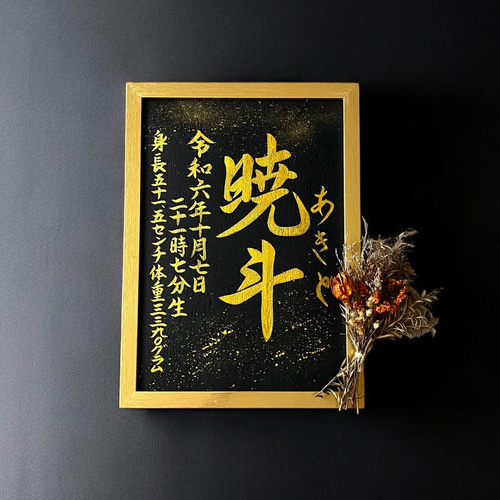 あきと
暁斗
令和六年十月七日
二十一時七分生
身長五十一.五センチ体重三三九〇グラム